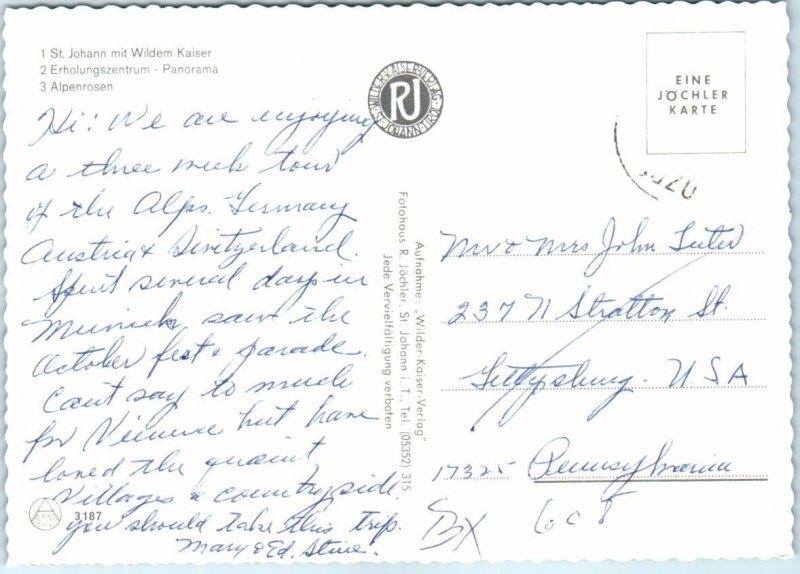 1 St. Johann mit Wildem Kaiser
2 Erholungszentrum - Panorama
3 Alpenrosen
Hi: We are enjoying
a three week tour
of the Alps. Germany
Austria & Switzerland.
Spent several days in
Munich, saw the
October fest & parade.
Can't say to much
for Vienna but have
loved the quaint
Villages & countryside.
you should take this trip.
Mary & Ed. Stine.
3187
WILDER-KAISER-VERLAG
RJ
ST. JOHANN-TIROL
Aufnahme: „Wilder-Kaiser-Verlag"
Fotohaus R. Jöchler, St. Johann i. T., Tel. (05352) 315
Jede Vervielfältigung verboten
EINE
JÖCHLER
KARTE
Mr & Mrs John Suter
237 N Stratton St.
Gettysburg. USA
17325 Pennsylvania
BX 608